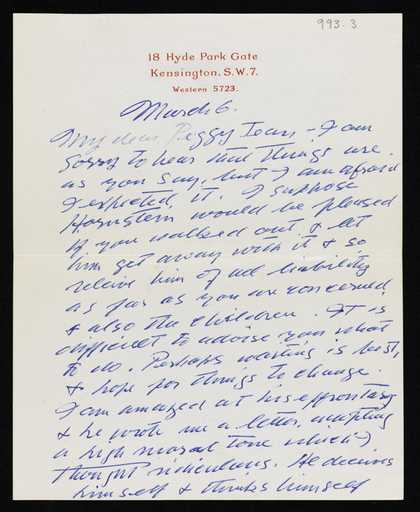 993.3
18 Hyde Park Gate
Kensington, S.W.7.
Western 5723.
March 6.
My dear Peggy Jean - I am
sorry to hear that things are
as you say, but I am afraid
I expected it. I suppose
Hornstein would be pleased
if you walked out & let
him get away with it & so
relieve him of all liability
as far as you are concerned
& also the children. It is
difficult to advise you what
to do. Perhaps waiting is best,
& hope for things to change.
I am amazed at his effrontery
& he wrote me a letter, adopting
a high moral tone which I
thought ridiculous. He deceives
himself & thinks himself